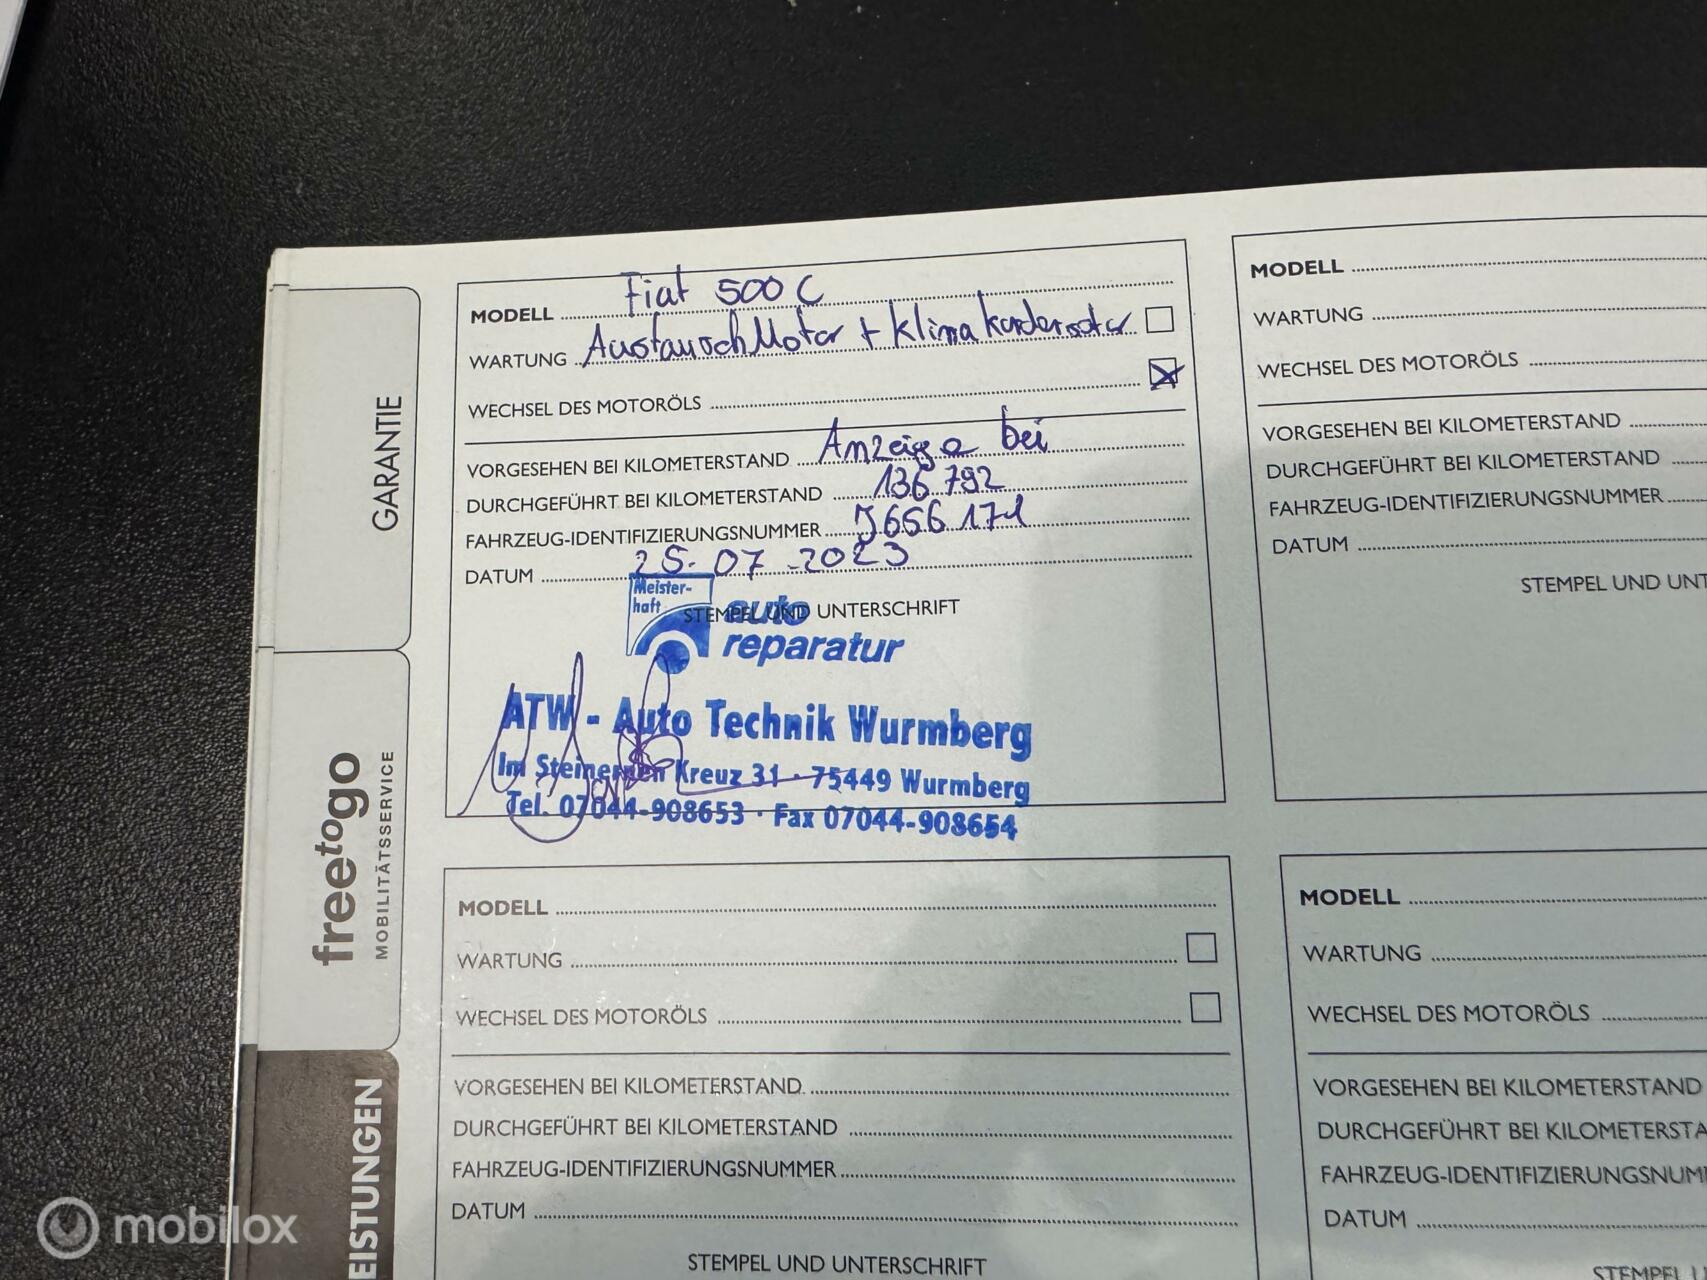 GARANTIE
freetogo
MOBILITÄTSSERVICE
EISTUNGEN
MODELL Fiat 500 C
WARTUNG Austausch Motor + Klima
WECHSEL DES MOTORÖLS
VORGESEHEN BEI KILOMETERSTAND Anzeige bei
DURCHGEFÜHRT BEI KILOMETERSTAND 136 792
FAHRZEUG-IDENTIFIZIERUNGSNUMMER J656 171
DATUM 25.07.2023
STEMPEL UND UNTERSCHRIFT
Meister-
haft
auto
reparatur
ATW - Auto Technik Wurmberg
Im Steinernen Kreuz 31 · 75449 Wurmberg
Tel. 07044-908653 · Fax 07044-908654
MODELL
WARTUNG
WECHSEL DES MOTORÖLS
VORGESEHEN BEI KILOMETERSTAND
DURCHGEFÜHRT BEI KILOMETERSTAND
FAHRZEUG-IDENTIFIZIERUNGSNUMMER
DATUM
STEMPEL UND UNT
MODELL
WARTUNG
WECHSEL DES MOTORÖLS
VORGESEHEN BEI KILOMETERSTAND
DURCHGEFÜHRT BEI KILOMETERSTAND
FAHRZEUG-IDENTIFIZIERUNGSNUMMER
DATUM
STEMPEL UND UNTERSCHRIFT
MODELL
WARTUNG
WECHSEL DES MOTORÖLS
VORGESEHEN BEI KILOMETERSTAND
DURCHGEFÜHRT BEI KILOMETERSTA
FAHRZEUG-IDENTIFIZIERUNGSNUM
DATUM
STEMPEL U
mobilox